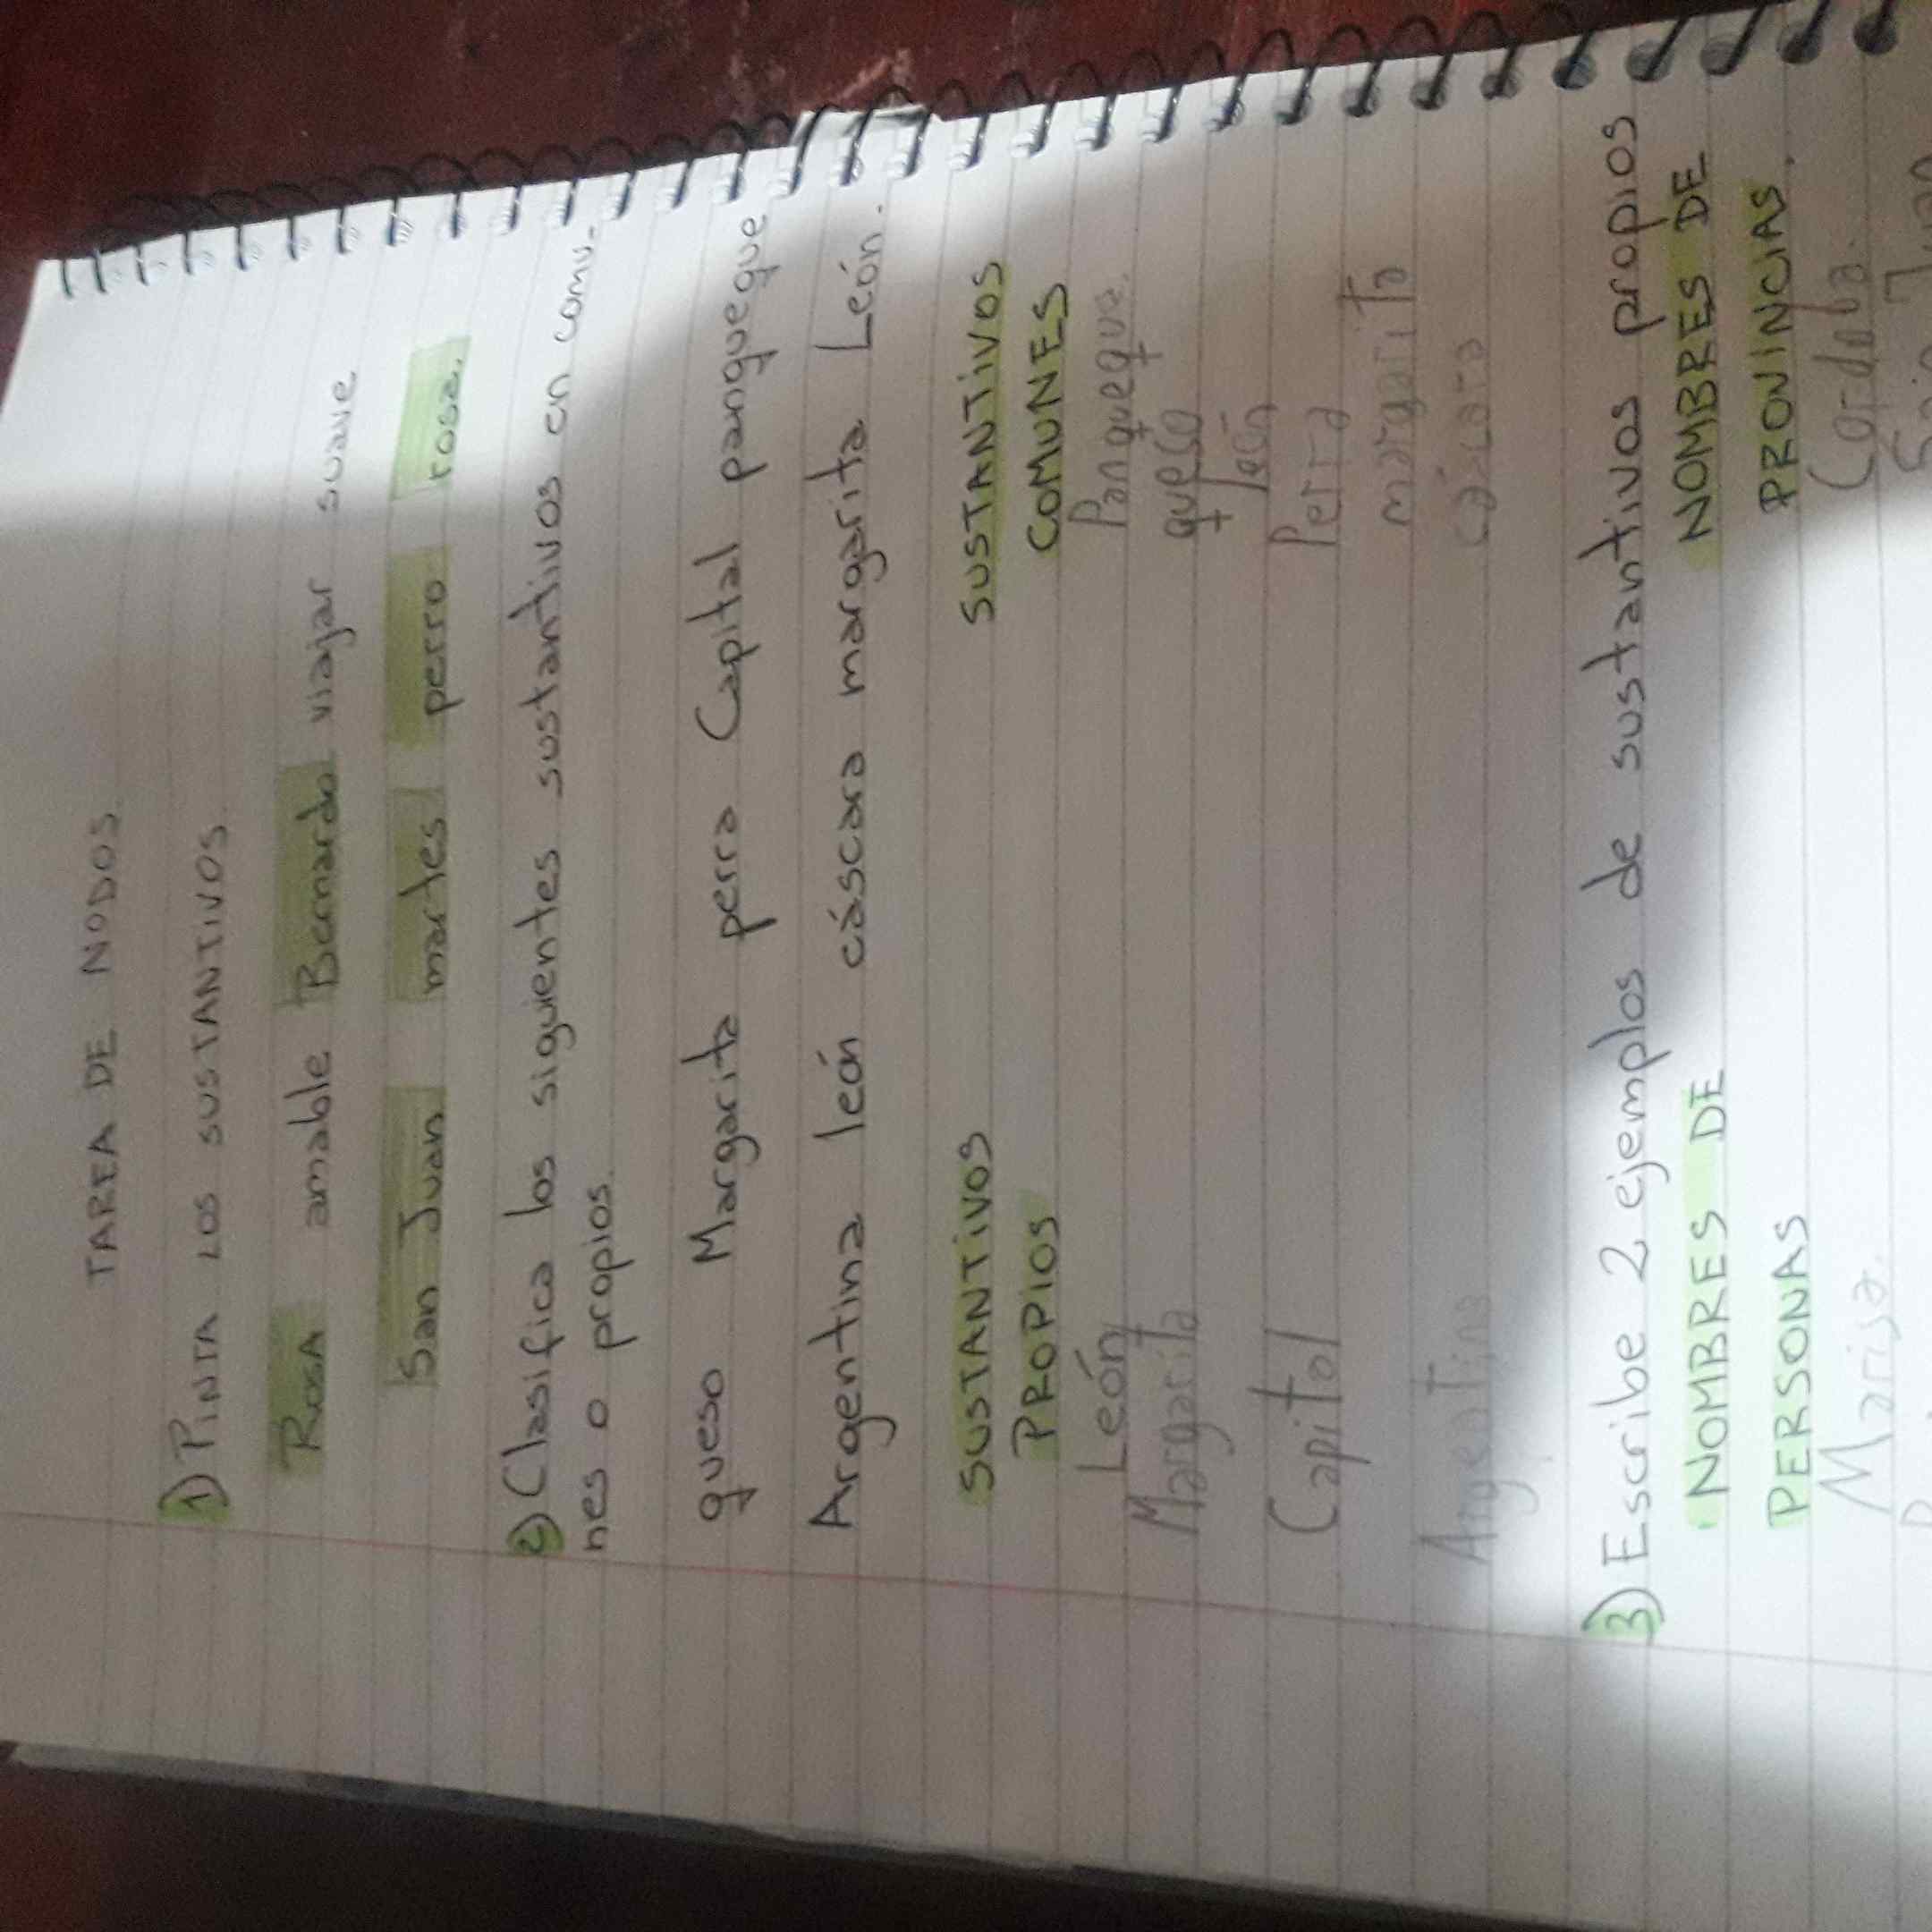 TAREA DE NODOS
1) PINTA LOS SUSTANTIVOS.
ROSA amable Bernardo viajar suave
San Juan martes perro rosa.
2) Clasifica los siguientes sustantivos en comu-
nes o propios.
queso Margarita perra Capital panqueque
Argentina león cáscara margarita León.
SUSTANTIVOS SUSTANTIVOS
PROPIOS COMUNES
León Panqueque.
Margarita queso
león
Capital Perra
margarita
Argentina cáscara
3) Escribe 2 ejemplos de sustantivos propios
NOMBRES DE NOMBRES DE
PERSONAS PROVINCIAS.
Marisa. Cordoba.
San Juan